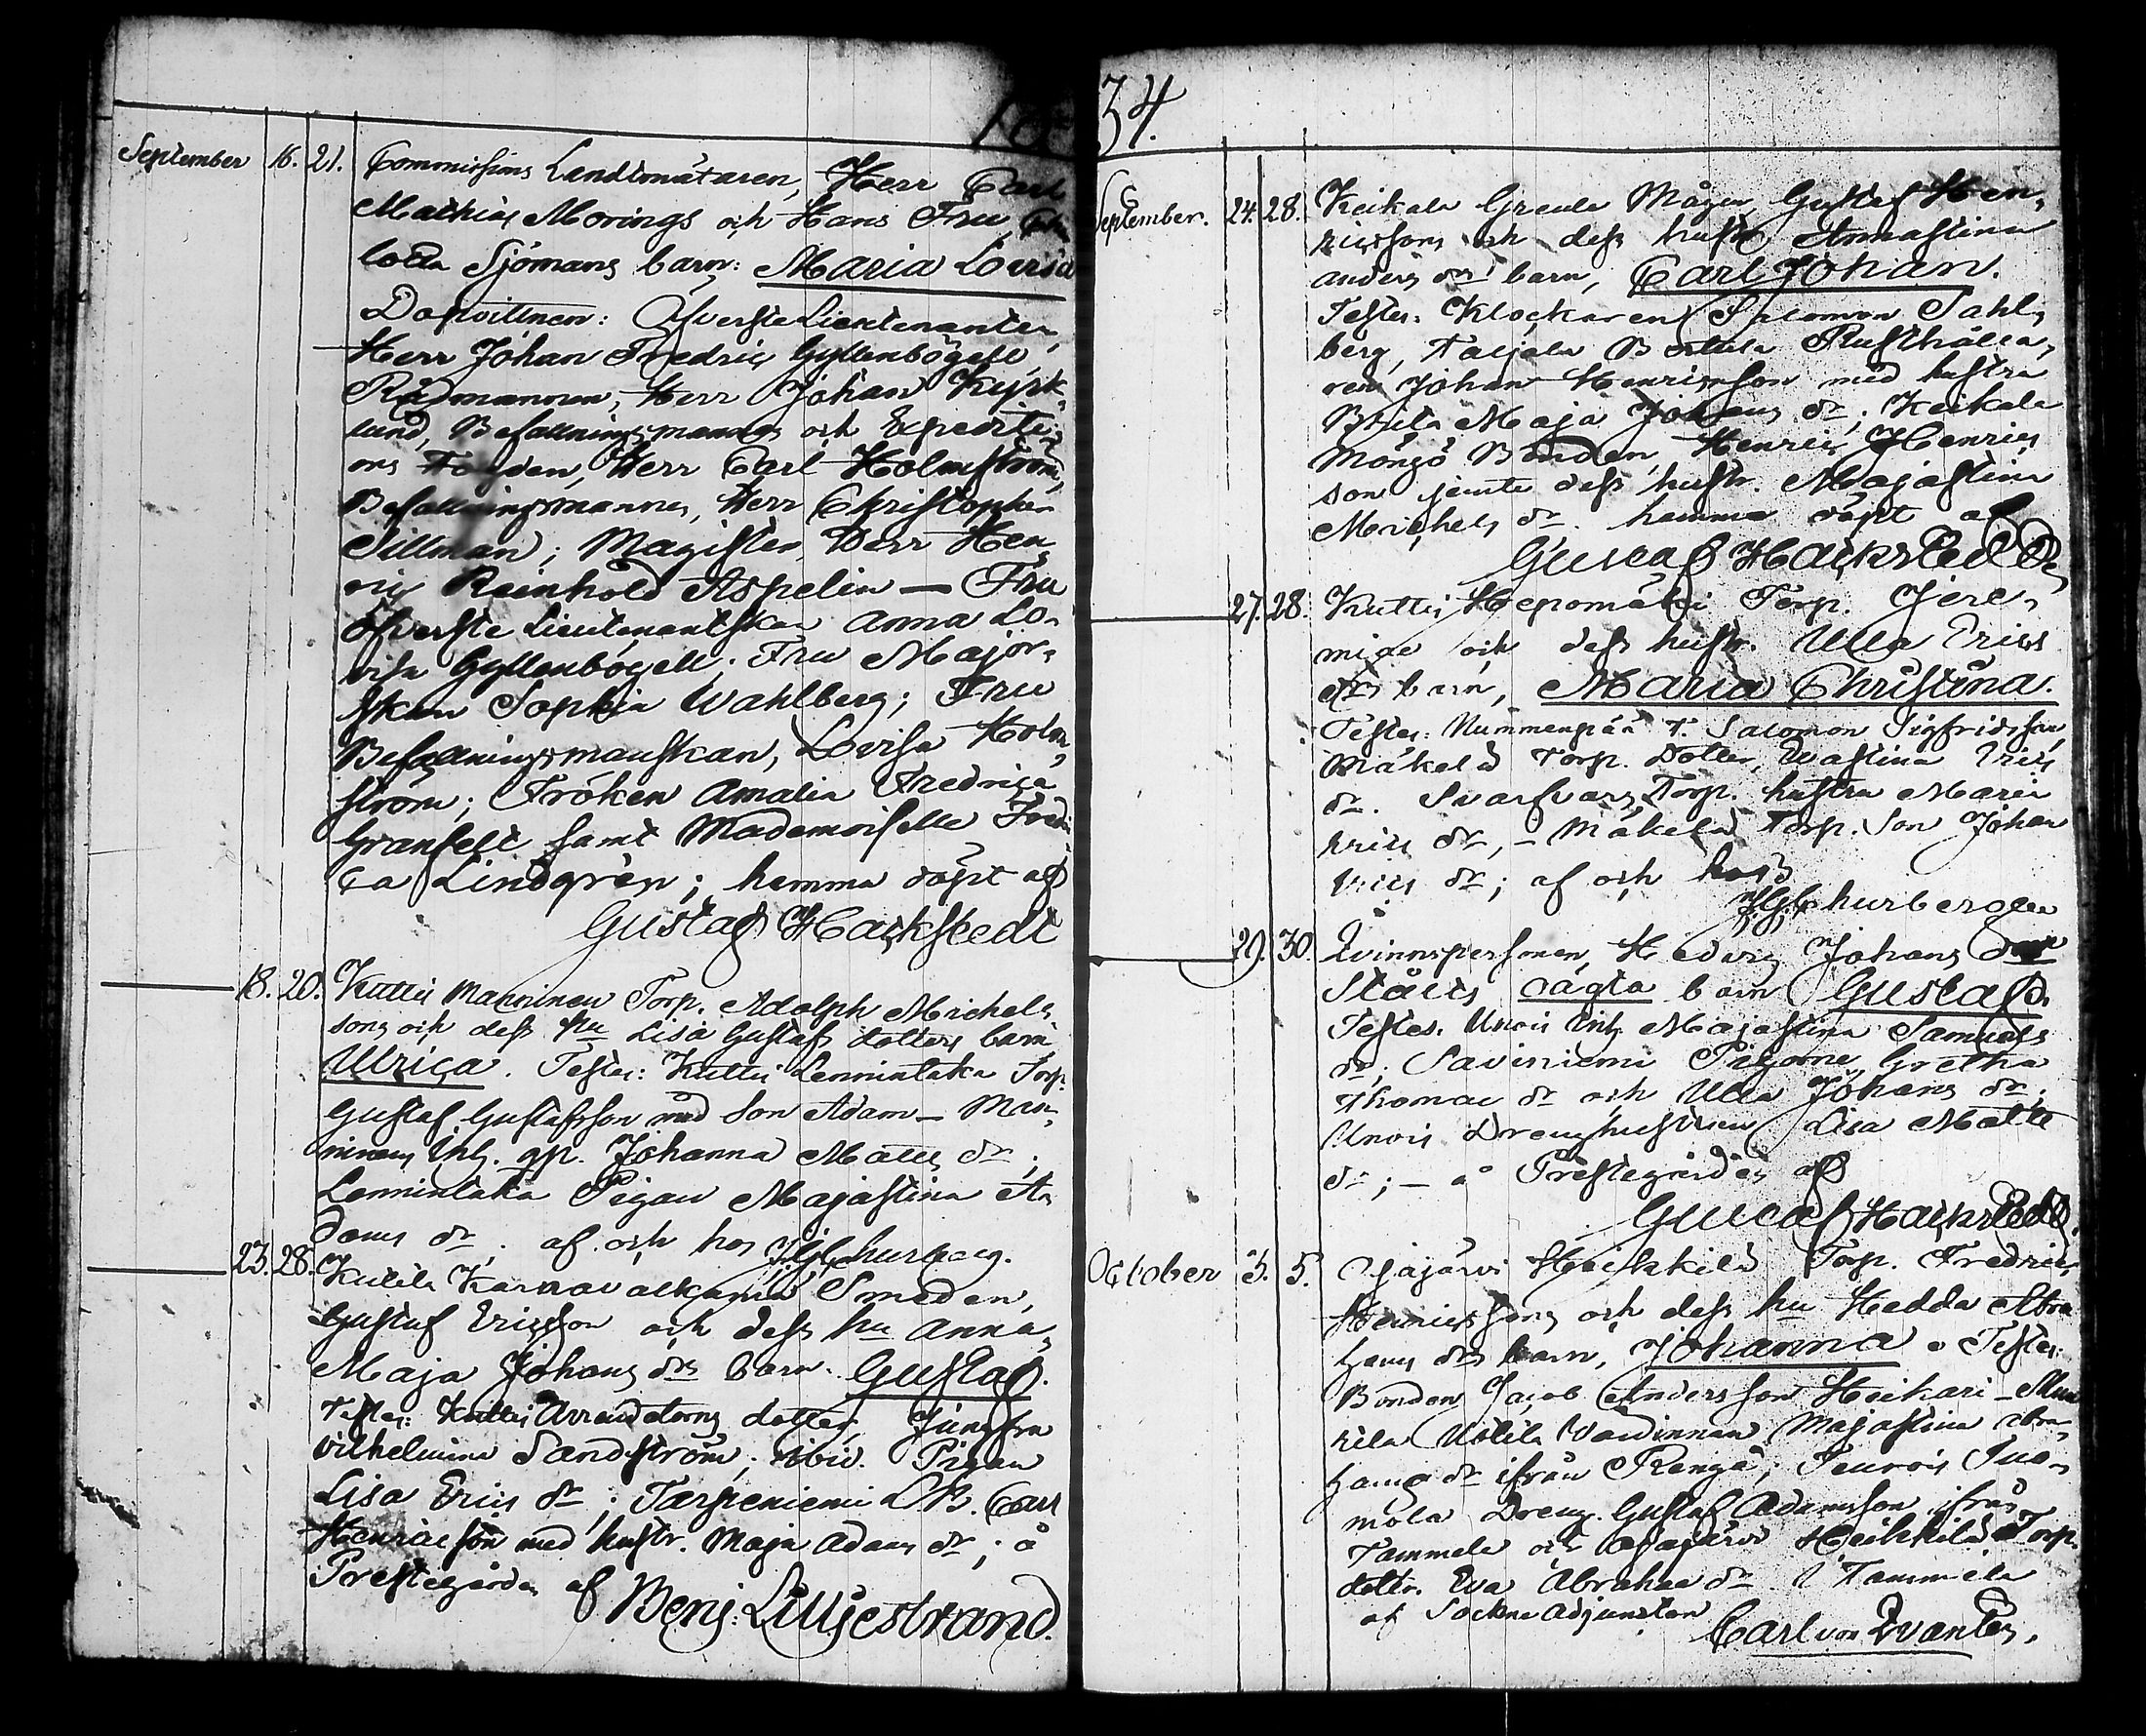 34.
September 16. 21. Commissions Landtmätaren, Herr Carl
Mathias Morings och Hans Fru
lotta Sjömans barn: Maria Lovisa
Dopvittnen: Öfverste Lieutenanten,
Herr Johan Fredric Gyllenbögell,
Rådmannen, Herr Johan Kyrk,
lund, Befallningsmannen och Expediti,
ons Fogden, Herr Carl Holmström,
Befallningsmannen, Herr Christopher
Tillman; Magister Herr Hen,
ric Reinhold Aspelin — Fru
Öfverste Lieutenantskan Anna Lo,
visa Gyllenbögell. Fru Major,
skan Sophia Wahlberg; Fru
Befallningsmanskan, Lovisa Holm,
ström; Fröken Amalia Fredrica
Granfelt samt Mademoiselle Fredri
ca Lindgren; hemma döpt af
Gustaf Hackstedt
18. 20. Kuttis Manninen Torp. Adolph Michels
sons och dess hu Lisa Gustafs dotters barn
Ulrica. Testes: Kuttis Lemmintaka Torp.
Gustaf Gustafsson med son Adam — Man,
ninens Inh. gp. Johanna Matts dr;
Lemmintaka Pigan Majastina A,
dams dr. af och hos
23. 28. Smeden,
Gustaf Ericsson och dess hu Anna,
Maja Johans drs barn. Gustaf.
Testes: Kuttis Arrendatorns dotter, Jungfru
Vilhelmina Sandström; ibid. Pigan
Lisa Erics dr; Tarpeniemi Carl
Henricsson med hustr. Maja Adams dr; å
Prestegården af Benj: Lilljestrand.
September. 24. 28. Keikala Greula Mågen Gustaf Hen,
ricssons och dess hustr Annastina
Anders drs barn, Carl Johan.
Testes: Klockaren Salomon Sahl,
berg, Taljala Bertula Rusthålla,
ren Johan Henricsson med hustru
Brita Maja Johans dr; Keikala
Möngö Bonden, Henric Henrics
son jemte dess hustr. Majastina
Michels dr. hemma döpt af
Gustaf Hackstedt
27. 28. Kuttis Hepomäki Torp. Jere,
mias och dess hustr. Ulla Erics
drs barn, Maria Christina.
Testes: Nummenpää T. Salomon Sigfridsson,
Mäkelä Torp. Dotter, Evastina Erics
dr. Torp. hustru Maria
Erics dr, — Mäkelä Torp. Son Johan
Erics ; af och hos
29. 30. Qvinnspersonen, Hedvig Johans
oägta barn Gustaf.
Testes. Inh. Majastina Samuels
dr; Saviniemi Pigorne, Gretha
Thomae dr och Ulla Johans dr;
Drenghustrun Lisa Matts
dr; — å Prestegården af
Gustaf Hackstedt.
October 3. 5. Ojajärvi Heikkilä Torp. Fredric
Henricssons och dess hu Hedda Abra
hams drs barn, Johanna. Testes:
Bonden Jacob Andersson Heikari —
Uotila Värdinnan Majastina Abra,
hams dr ifrån Rengo;
Dreng. Gustaf Adamsson ifrån
Tammela och Ojajärvi Heikkilä Torp.
dotter. Eva Abrahae dr i Tammela
af Sockne Adjuncten
Carl von Qvanten.